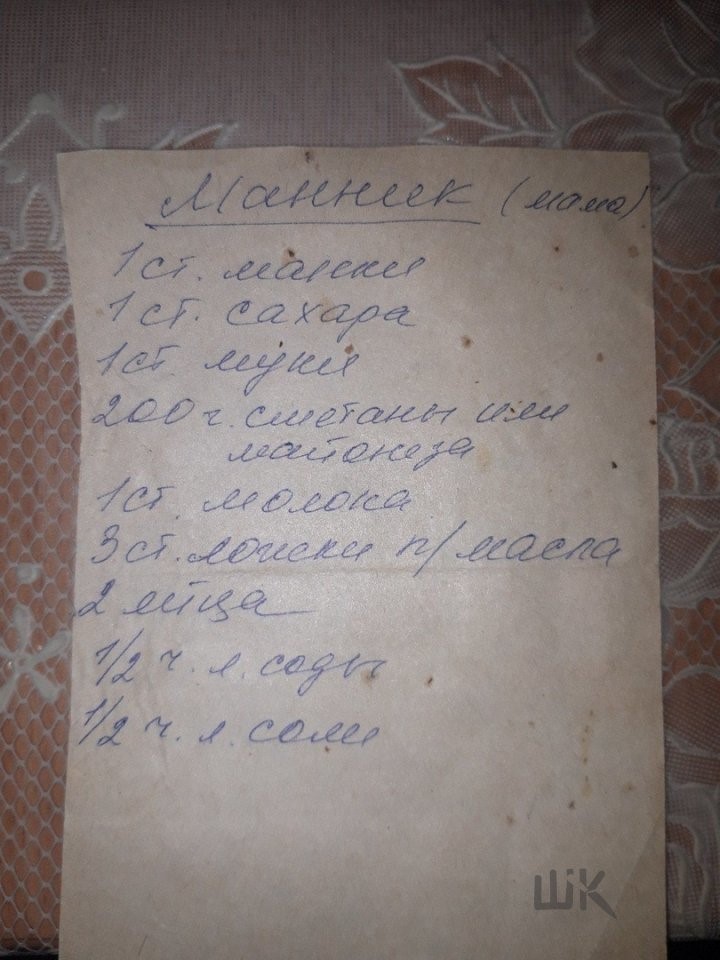 Манник (мама)
1 ст. манки
1 ст. сахара
1 ст. муки
200 г. сметаны или
майонеза
1 ст. молока
3 ст. ложки п/масла
2 яйца
1/2 ч. л. соды
1/2 ч. л. соли
ШК